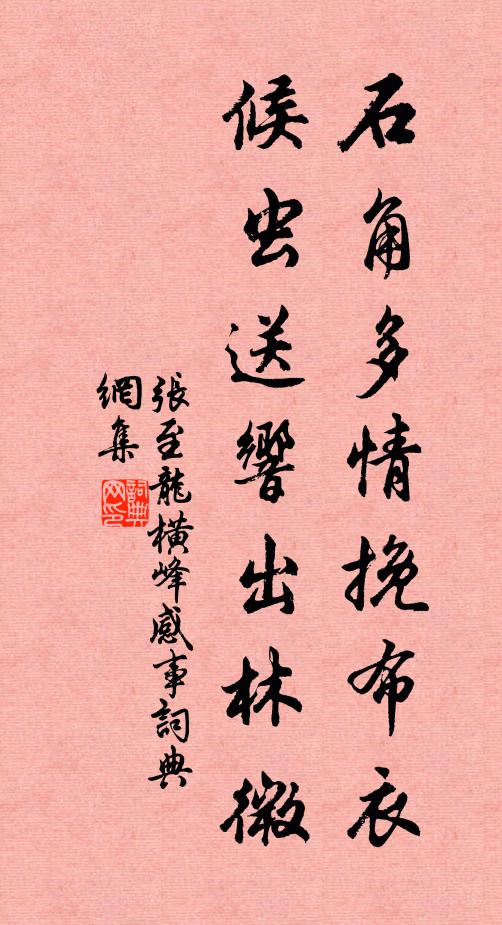 石角多情挽布衣
候虫送響出林微
張至龍橫峰感事詞典
網集
詞典
网印